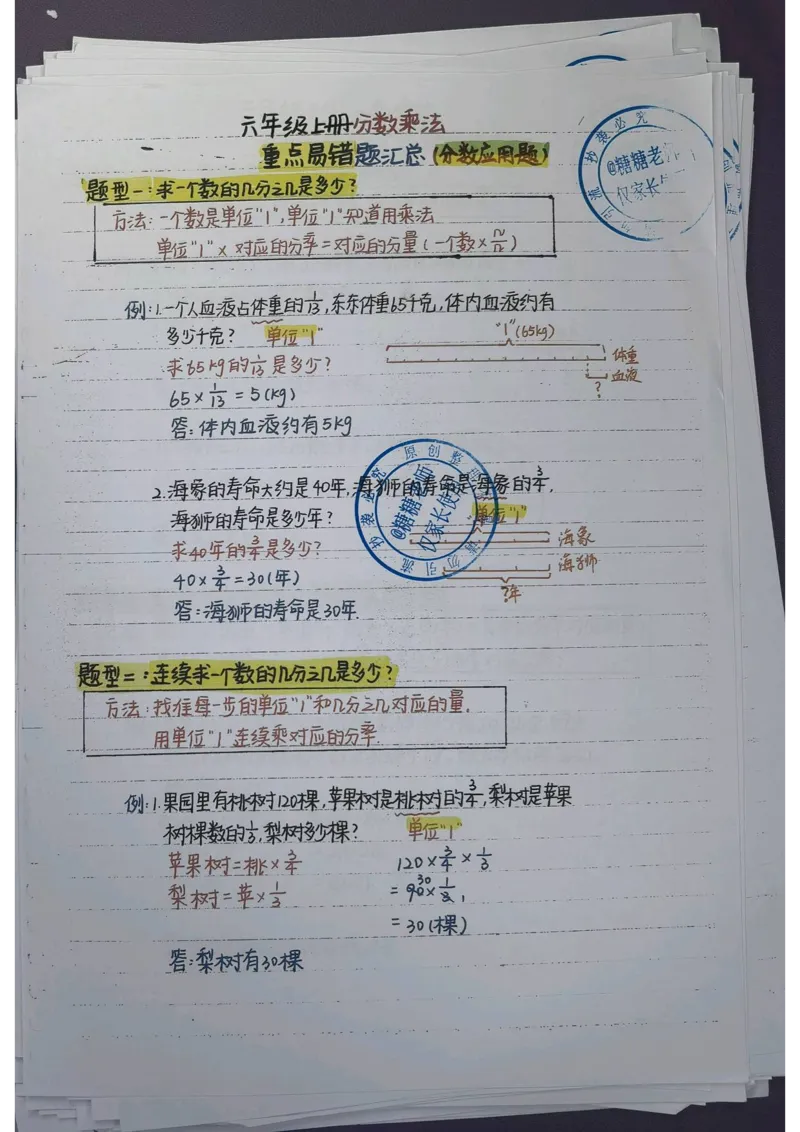 六年级上册分数乘法
重点易错题汇总(分数应用题)
题型一:求一个数的几分之几是多少?
方法:一个数是单位"1",单位"1"知道用乘法
单位"1"×对应的分率=对应的分量(一个数×几/几)
例:1.一个人血液占体重的1/13,东东体重65千克,体内血液约有
多少千克? 单位"1"
"1"(65kg)
体重
血液
?
求65kg的1/13是多少?
65×1/13=5(kg)
答:体内血液约有5kg
2.海象的寿命大约是40年,海狮的寿命是海象的3/4,
海狮的寿命是多少年? 单位"1"
求40年的3/4是多少?
海象
海狮
?年
40×3/4=30(年)
答:海狮的寿命是30年.
题型二:连续求一个数的几分之几是多少?
方法:找准每一步的单位"1"和几分之几对应的量,
用单位"1"连续乘对应的分率.
例:1.果园里有桃树120棵,苹果树是桃树的3/4,梨树是苹果
树棵数的1/3,梨树多少棵? 单位"1"
苹果树=桃×3/4
梨树=苹×1/3
120×3/4×1/3
=90×1/3
30 1
=30(棵)
答:梨树有30棵
抄袭必究
@糖糖老
仅家长
引流
原创整
抄袭必究
@糖糖老师
仅家长使
勿引流